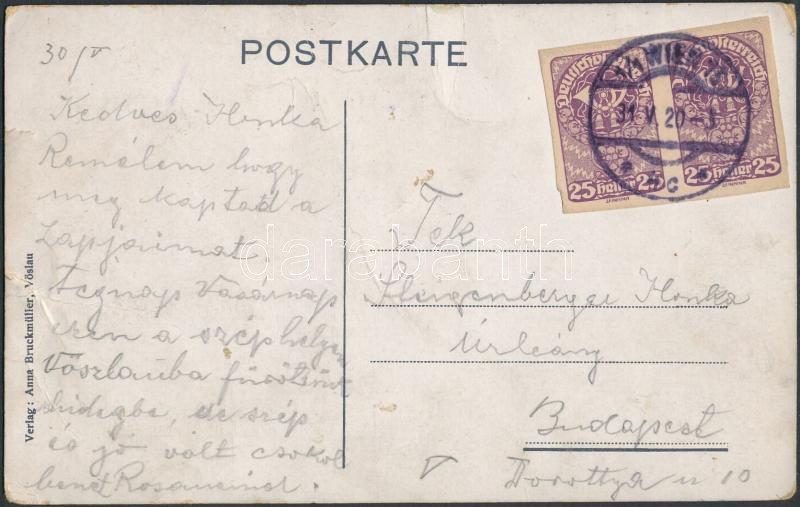 30 f V
POSTKARTE
Kedves Ilonka
Remélem hogy
meg kaptad a
Lapjaimat.
Tegnap Vasárnap
ezen a szép helyen
Vöszlauba fürödtünk
hidegbe, de szép
és jó volt csokol
benet
Verlag: Anna Bruckmüller, Vöslau
WIEN
31.V.20
* c *
Deutschösterreich
25 heller 25
25 heller 25
Tek
Ilonka
Úrleány
Budapest
Dorottya u 10
darabanth